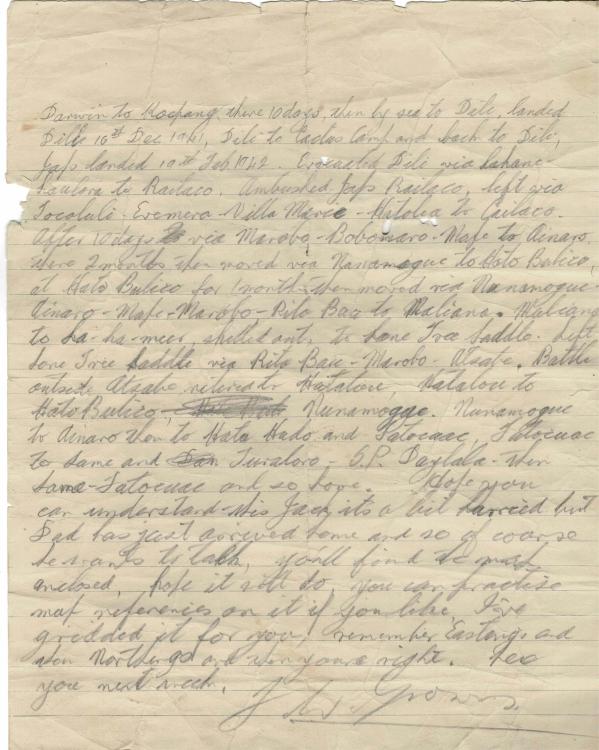 Darwin to Koepang, there 10 days, then by sea to Dili, landed
Dilli 16th Dec 1941, Dili to Cactus Camp and back to Dili,
Japs landed 19th Feb 1942. Evacuated Dili via Lahane-
to Railaco, Ambushed Japs Railaco, left via
Tocoluli-Eremera-Villa Maria-Hatolia to Cailaco.
After 10 days via Marobo-Bobonaro-Mape to Ainaro,
there 2 months then moved via Nunamogue to Hato Bulico,
at Hato Bulico for 1 month then moved via Nunamogue-
Ainaro-Mape-Marobo-Rito Bau to Maliana. Maliana
to La-ha-meer, shelled out, to Lone Tree Saddle. Left
Lone Tree Saddle via Rito Bau-Marobo-Atsabe. Battle
outside Atsabe retired to Hatalou Hatalou to
Hato Bulico, Nunamogue. Nunamogue
to Ainaro then to Hato Hudo and Fatocuac, Fatocuac
to Same and Turaloro-S.P. Daylala-then
Same-Fatocuac and so home. Hope you
can understand this Jack its a bit hurried but
Dad has just arrived home and so of course
he wants to talk, you'll find the map
enclosed, hope it will do, you can practise
map references on it if you like, I've
gridded it for you, remember Eastings and
then Northings and then youre right. See
you next week.